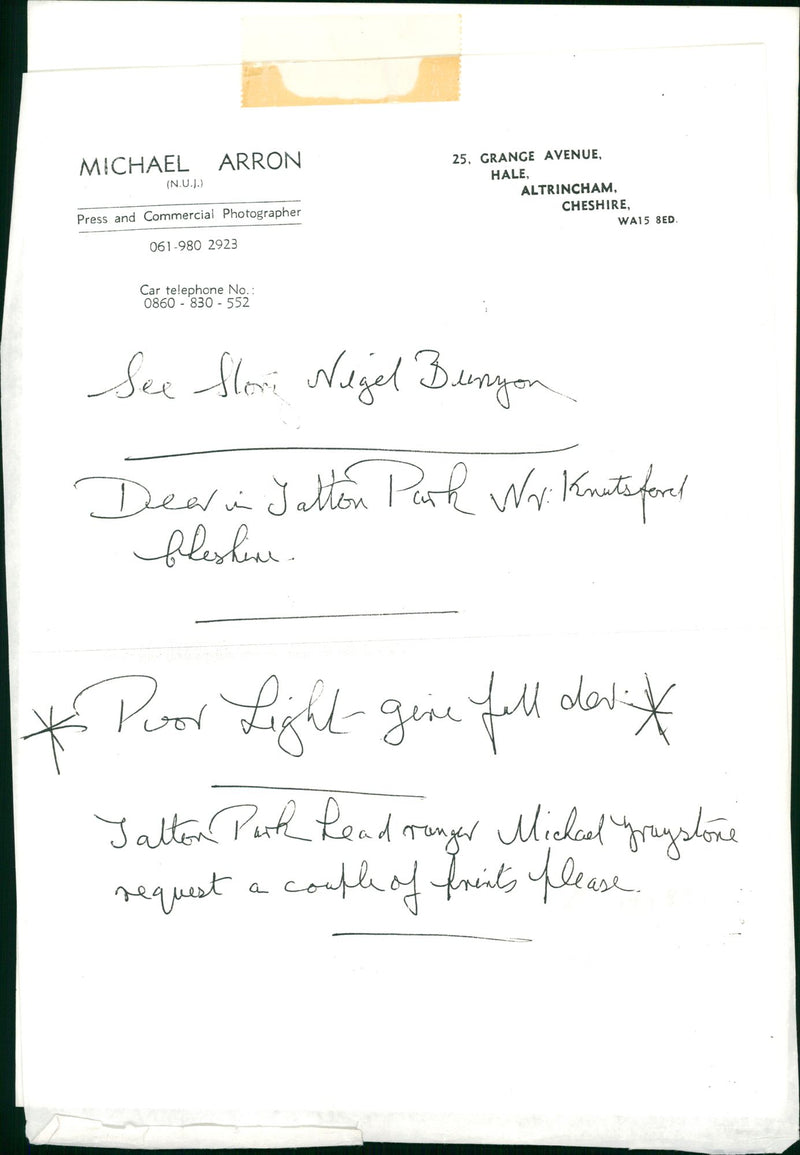 MICHAEL ARRON
(N.U.J.)
Press and Commercial Photographer
061-980 2923
Car telephone No.:
0860 - 830 - 552
25, GRANGE AVENUE,
HALE,
ALTRINCHAM,
CHESHIRE,
WA15 8ED.
See Stori Nigel Bunyon
Deer in Tatton Park Nr: Knutsford
Cheshire.
* Poor Light - give full dev: *
Tatton Park head ranger Michael Graystone
request a couple of prints please.